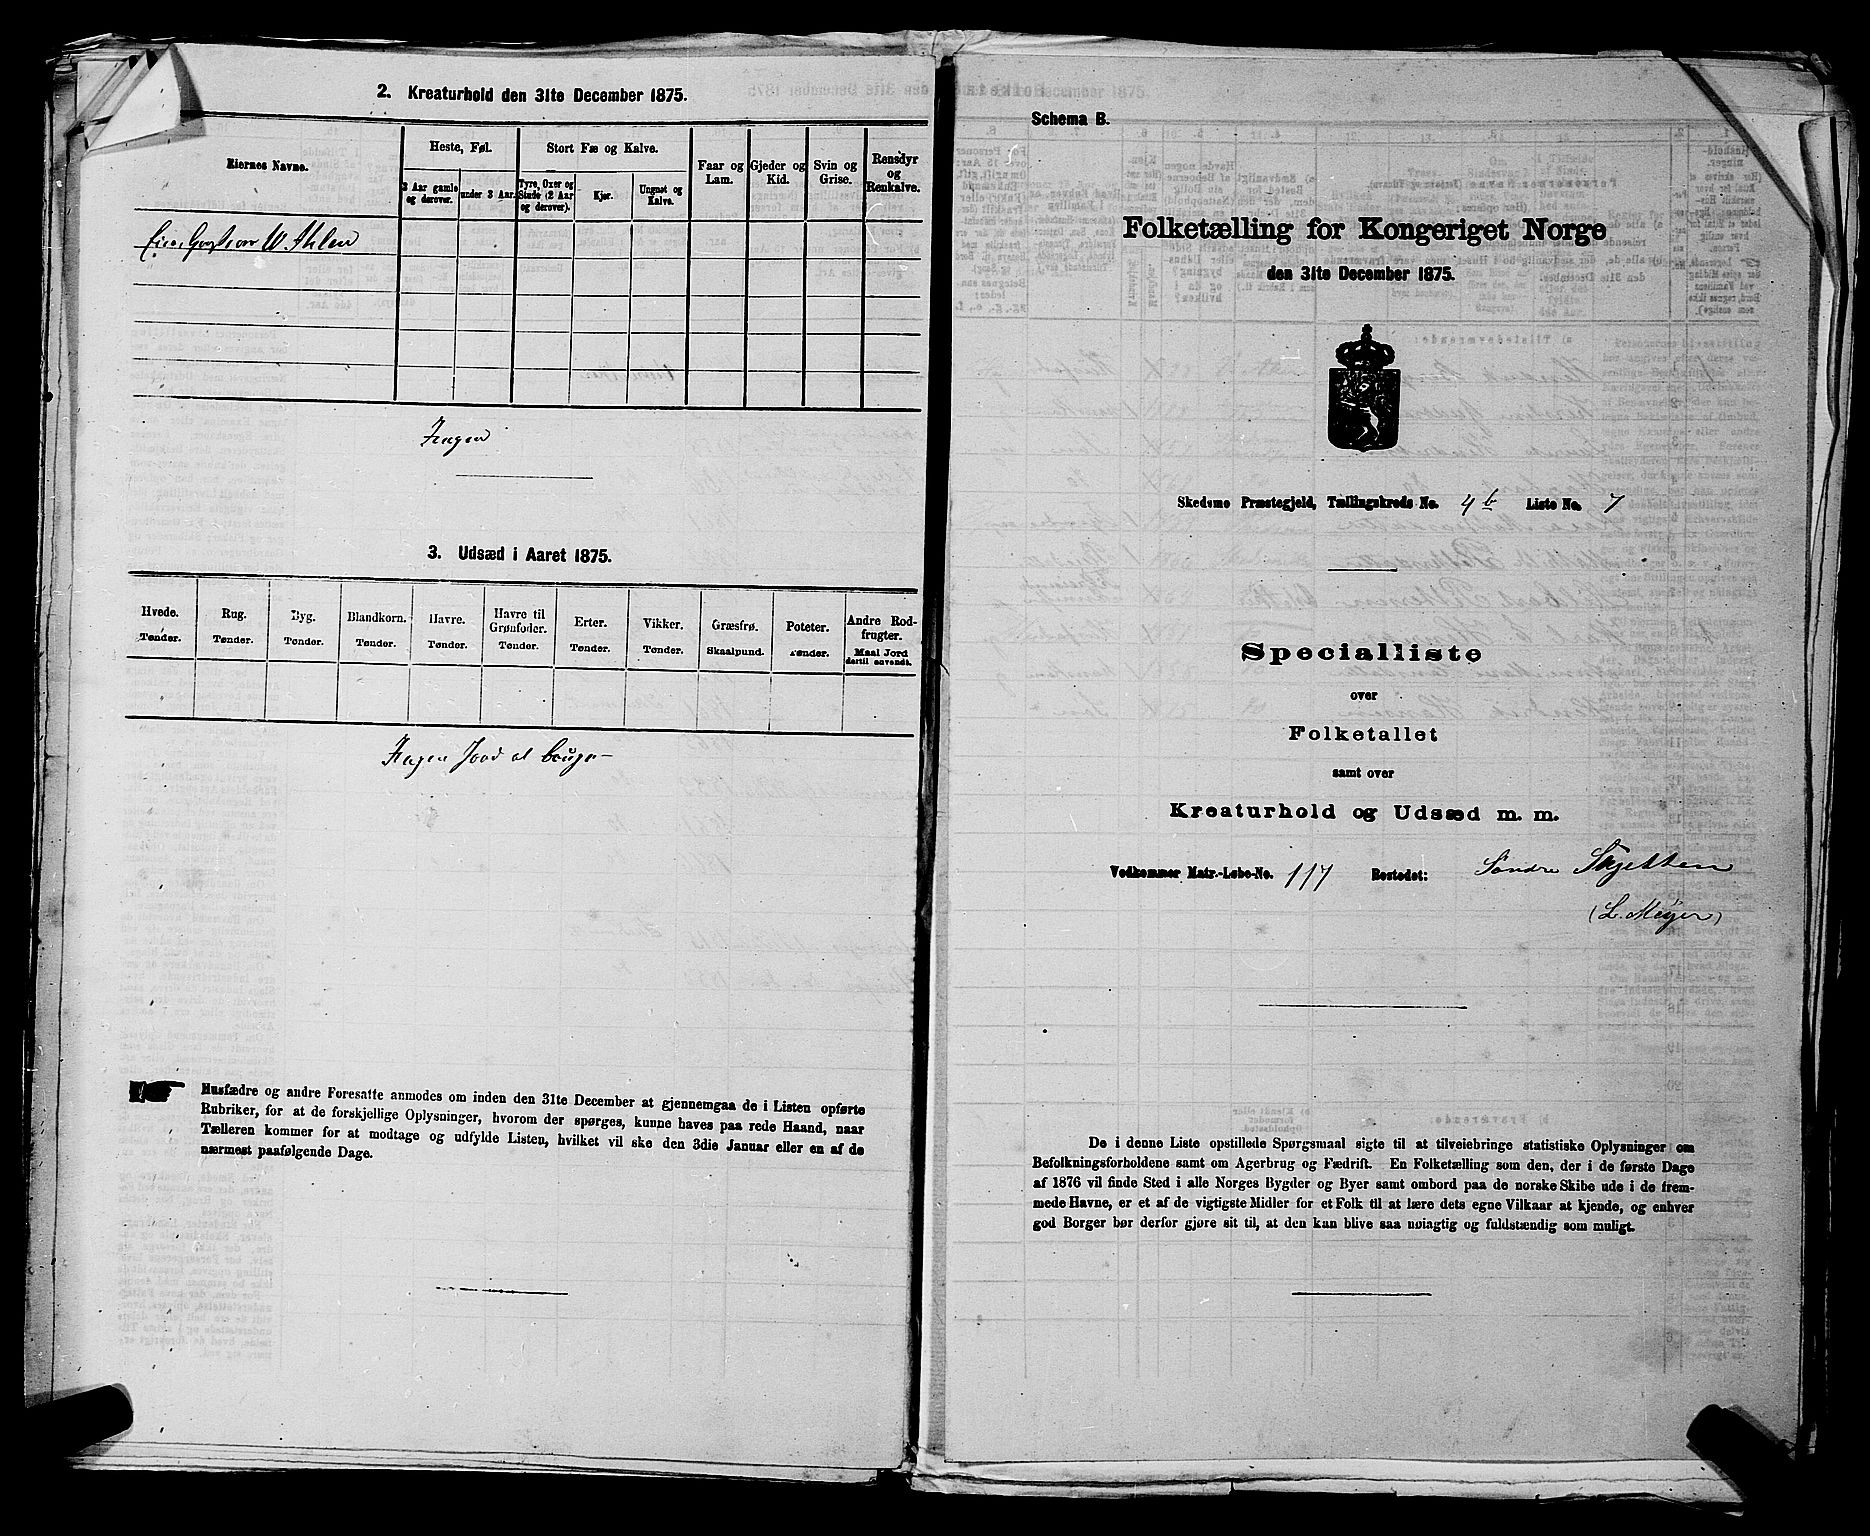 2. Kreaturhold den 31te December 1875.
Eiernes Navne.
Heste, Føl.
3 Aar gamle og derover.
under 3 Aar.
Stort Fæ og Kalve.
Tyre, Oxer og Stude (2 Aar og derover).
Kjør.
Ungnøt og Kalve.
Faar og Lam.
Gjeder og Kid.
Svin og Grise.
Rensdyr og Renkalve.
Ingen
3. Udsæd i Aaret 1875.
Hvede. Tønder.
Rug. Tønder.
Byg. Tønder.
Blandkorn. Tønder.
Havre. Tønder.
Havre til Grønfoder. Tønder.
Erter. Tønder.
Vikker. Tønder.
Græsfrø. Skaalpund.
Poteter. Tønder.
Andre Rodfrugter. Maal Jord dertil anvendt.
Ingen Jord at bruge
Husfædre og andre Foresatte anmodes om inden den 31te December at gjennemgaa de i Listen opførte
Rubriker, for at de forskjellige Oplysninger, hvorom der spørges, kunne haves paa rede Haand, naar
Tælleren kommer for at modtage og udfylde Listen, hvilket vil ske den 3die Januar eller en af de
nærmest paafølgende Dage.
Schema B.
Folketælling for Kongeriget Norge
den 31te December 1875.
Skedsmo Præstegjeld, Tællingskreds No. 4 b Liste No. 7
Specialliste
over
Folketallet
samt over
Kreaturhold og Udsæd m. m.
Vedkommer Matr.-Løbe-No. 117 Bostedet: Søndre Skjetten
(L. Meyer)
De i denne Liste opstillede Spørgsmaal sigte til at tilveiebringe statistiske Oplysninger om
Befolkningsforholdene samt om Agerbrug og Fædrift. En Folketælling som den, der i de første Dage
af 1876 vil finde Sted i alle Norges Bygder og Byer samt ombord paa de norske Skibe ude i de frem-
mede Havne, er et af de vigtigste Midler for et Folk til at lære dets egne Vilkaar at kjende, og enhver
god Borger bør derfor gjøre sit til, at den kan blive saa nøiagtig og fuldstændig som muligt.